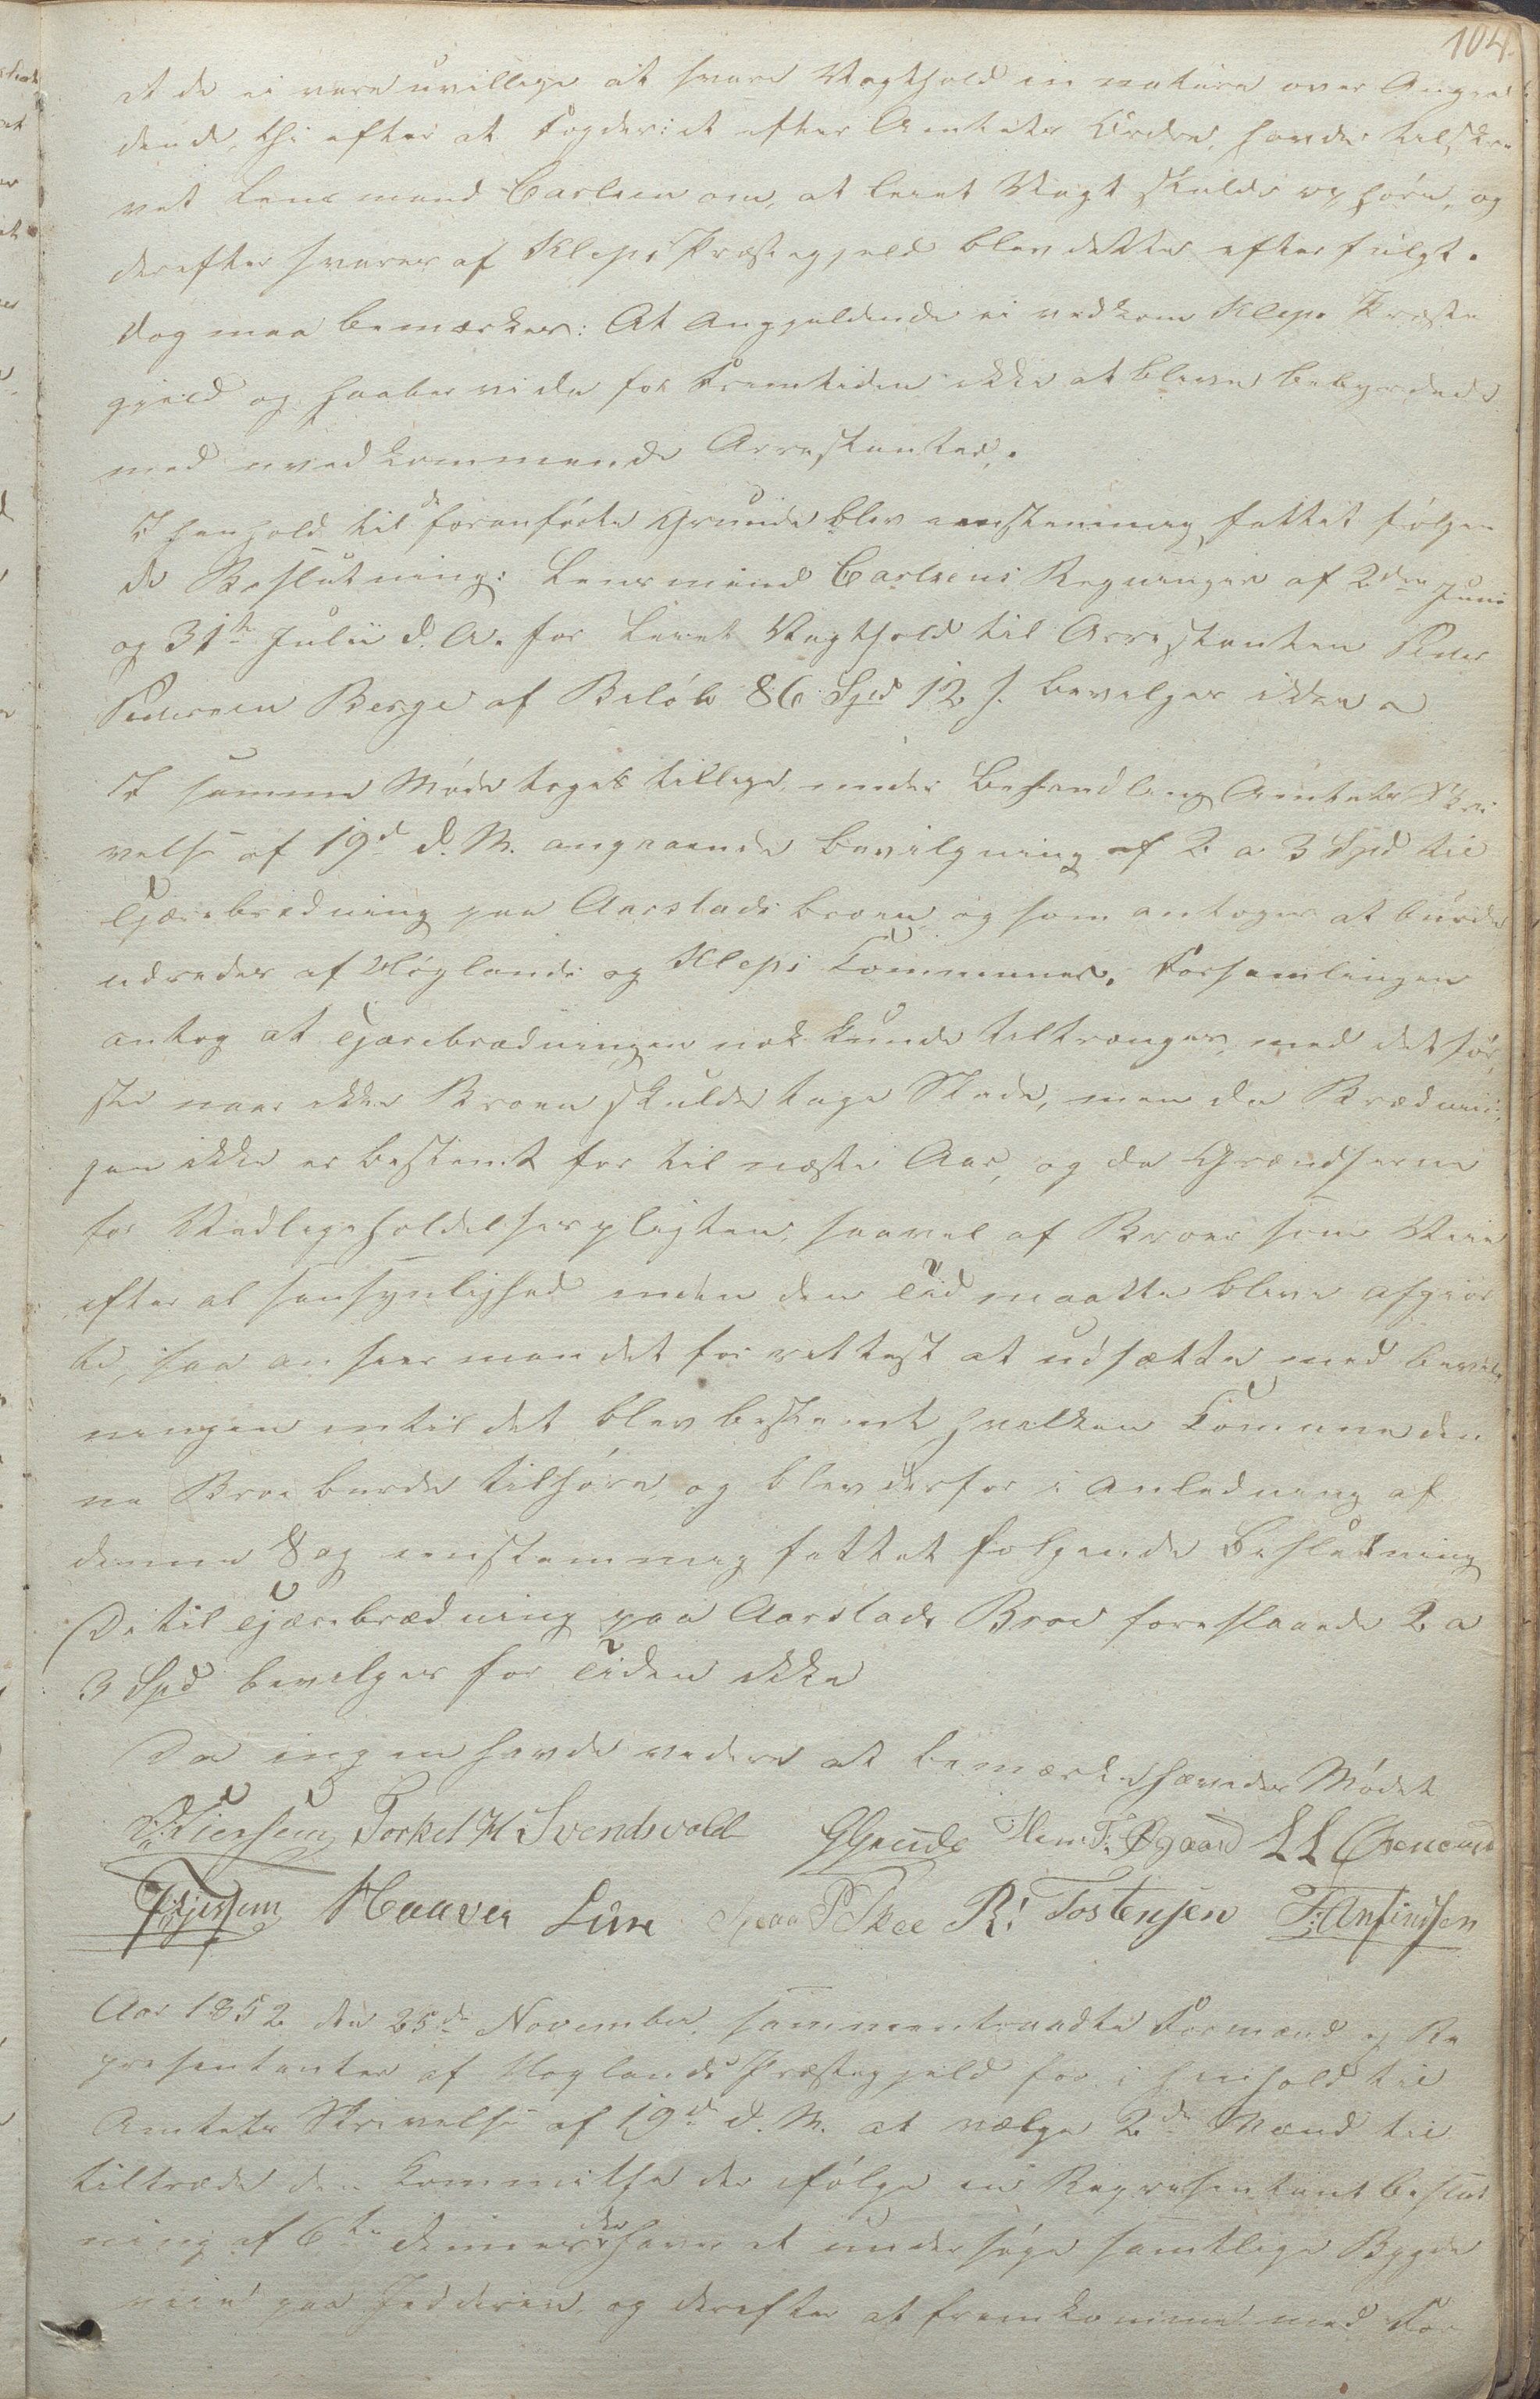 104.
at de ei vare uvillige at svare Vagthold in natura over Angjel
dende, thi efter at Fogderiet efter Amtets Ordre, havde tilskre
vet Lensmand Carlsen om, at leiet Vagt skulde ophøre, og
derefter svares af Kleps Præstegjeld blev dette efterfulgt.
dog maa bemærkes: At Angjeldende ei vedkom Klep Præste
gjeld og haaber vi da for Fremtiden ikke at bleve bebyrdede
med uvedkommende Arrestanter.
I henhold til de foranførte Grunde blev eenstemmig fattet følgen
de Beslutning: Lensmand Carlsens Regninger af 2den Juni
og 31te Julii d. A. for Leiet Vagthold til Arrestanten Peder
Pedersen Berge af Beløb 86 Spd 12 s. bevilges ikke
I samme Møde toges tillige under Behandling Amtets Skri
velse af 19d d. M. angaaende bevilgning af 2 a 3 Spd til
Tjærebredning paa Aarstads broen og som antoges at burde
udredes af Høglands og Kleps Communer. Forsamlingen
antog at Tjærebrædningen nok kunde tiltrænges, med det før
ste naar ikke Broen skulde tage Skade, men da Brædnin
gen ikke er bestemt for til næste Aar, og da Grændserne
for Vedligeholdelsespligten, saavel af Broer som Veie
efter al sansynlighed inden den Tid maatte bleve afgior
te, saa anseer man det for rettest at udsætte med bevilg
ningen intil det blev bestemt hvilken Comune den
ne Broe burde tilhøre, og blev derfor i Anledning af
denne Sag eenstemmig fattet følgende Beslutning
De til Tjærebrædning paa Aarstads Broe foreslaaede 2 a
3 Spd bevilges for Tiden ikke
Da ingen havde videre at bemærke hævedes Mødet
Torkel H. Svendsvold GGrude L L
Haaver Lura R. Tostensen T: Anfindsen
Aar 1852 den 25de November, sammentraadte Formænd og Re
presentanter af Høglands Præstegjeld for i henhold til
Amtets Skrivelse af 19de d. M. at vælge 2de Mænd til
tiltræde den Committee der ifølge en Representantbeslut
ning af 6te dennes der haver at undersøge samtlige Bygde
veie paa Jedderen, og derefter at fremkomme med For